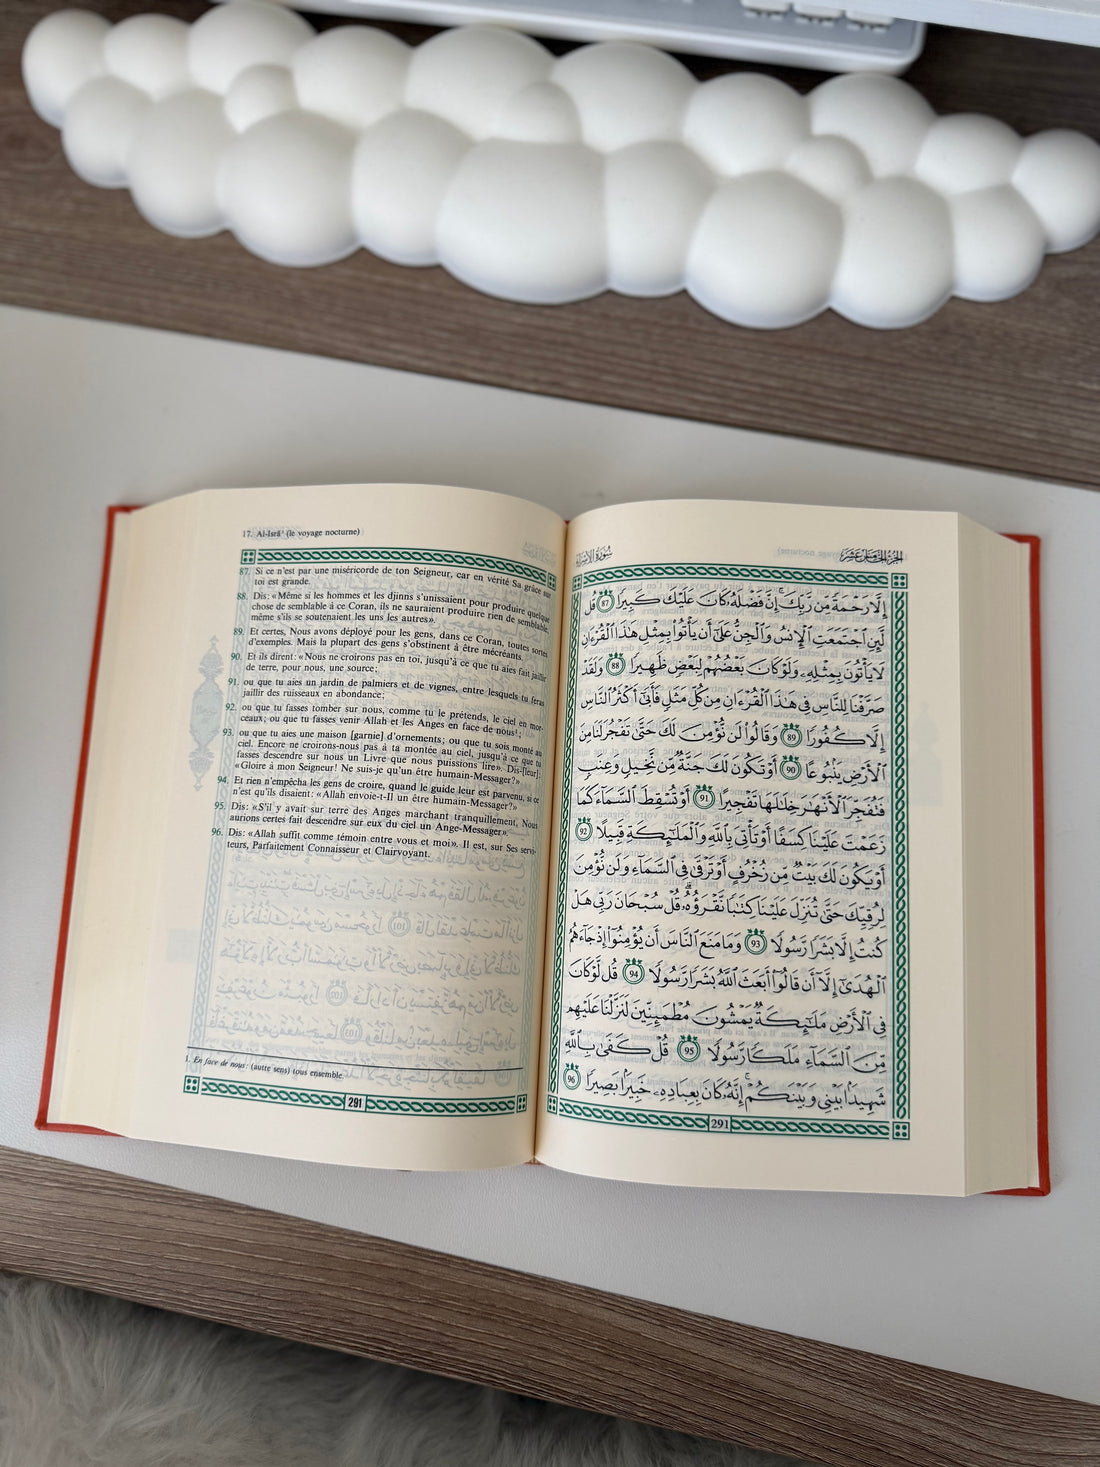 17. Al-Isrā' (le voyage nocturne)
87. Si ce n'est par une miséricorde de ton Seigneur, car en vérité Sa grâce sur
toi est grande.
88. Dis: «Même si les hommes et les djinns s'unissaient pour produire quelque
chose de semblable à ce Coran, ils ne sauraient produire rien de semblable,
même s'ils se soutenaient les uns les autres».
89. Et certes, Nous avons déployé pour les gens, dans ce Coran, toutes sortes
d'exemples. Mais la plupart des gens s'obstinent à être mécréants.
90. Et ils dirent: «Nous ne croirons pas en toi, jusqu'à ce que tu aies fait jaillir
de terre, pour nous, une source;
91. ou que tu aies un jardin de palmiers et de vignes, entre lesquels tu feras
jaillir des ruisseaux en abondance;
92. ou que tu fasses tomber sur nous, comme tu le prétends, le ciel en mor-
ceaux; ou que tu fasses venir Allah et les Anges en face de nous¹;
93. ou que tu aies une maison [garnie] d'ornements; ou que tu sois monté au
ciel. Encore ne croirons-nous pas à ta montée au ciel, jusqu'à ce que tu
fasses descendre sur nous un Livre que nous puissions lire». Dis-[leur]:
«Gloire à mon Seigneur! Ne suis-je qu'un être humain-Messager?»
94. Et rien n'empêcha les gens de croire, quand le guide leur est parvenu, si ce
n'est qu'ils disaient: «Allah envoie-t-Il un être humain-Messager?»
95. Dis: «S'il y avait sur terre des Anges marchant tranquillement, Nous
aurions certes fait descendre sur eux du ciel un Ange-Messager».
96. Dis: «Allah suffit comme témoin entre vous et moi». Il est, sur Ses servi-
teurs, Parfaitement Connaisseur et Clairvoyant.
1. En face de nous: (autre sens) tous ensemble.
291
الجزء الخامس عشر
سورة الإسراء
إِلَّا رَحْمَةً مِّن رَّبِّكَ إِنَّ فَضْلَهُۥ كَانَ عَلَيْكَ كَبِيرًا 87 قُل
لَّئِنِ ٱجْتَمَعَتِ ٱلْإِنسُ وَٱلْجِنُّ عَلَىٰٓ أَن يَأْتُوا۟ بِمِثْلِ هَٰذَا ٱلْقُرْءَانِ
لَا يَأْتُونَ بِمِثْلِهِۦ وَلَوْ كَانَ بَعْضُهُمْ لِبَعْضٍ ظَهِيرًا 88 وَلَقَدْ
صَرَّفْنَا لِلنَّاسِ فِى هَٰذَا ٱلْقُرْءَانِ مِن كُلِّ مَثَلٍ فَأَبَىٰٓ أَكْثَرُ ٱلنَّاسِ
إِلَّا كُفُورًا 89 وَقَالُوا۟ لَن نُّؤْمِنَ لَكَ حَتَّىٰ تَفْجُرَ لَنَا مِنَ
ٱلْأَرْضِ يَنۢبُوعًا 90 أَوْ تَكُونَ لَكَ جَنَّةٌ مِّن نَّخِيلٍ وَعِنَبٍ
فَتُفَجِّرَ ٱلْأَنْهَٰرَ خِلَٰلَهَا تَفْجِيرًا 91 أَوْ تُسْقِطَ ٱلسَّمَآءَ كَمَا
زَعَمْتَ عَلَيْنَا كِسَفًا أَوْ تَأْتِىَ بِٱللَّهِ وَٱلْمَلَٰٓئِكَةِ قَبِيلًا 92
أَوْ يَكُونَ لَكَ بَيْتٌ مِّن زُخْرُفٍ أَوْ تَرْقَىٰ فِى ٱلسَّمَآءِ وَلَن نُّؤْمِنَ
لِرُقِيِّكَ حَتَّىٰ تُنَزِّلَ عَلَيْنَا كِتَٰبًا نَّقْرَؤُهُۥ قُلْ سُبْحَانَ رَبِّى هَلْ
كُنتُ إِلَّا بَشَرًا رَّسُولًا 93 وَمَا مَنَعَ ٱلنَّاسَ أَن يُؤْمِنُوٓا۟ إِذْ جَآءَهُمُ
ٱلْهُدَىٰٓ إِلَّآ أَن قَالُوٓا۟ أَبَعَثَ ٱللَّهُ بَشَرًا رَّسُولًا 94 قُل لَّوْ كَانَ
فِى ٱلْأَرْضِ مَلَٰٓئِكَةٌ يَمْشُونَ مُطْمَئِنِّينَ لَنَزَّلْنَا عَلَيْهِم
مِّنَ ٱلسَّمَآءِ مَلَكًا رَّسُولًا 95 قُلْ كَفَىٰ بِٱللَّهِ
شَهِيدًۢا بَيْنِى وَبَيْنَكُمْ إِنَّهُۥ كَانَ بِعِبَادِهِۦ خَبِيرًۢا بَصِيرًا 96
291